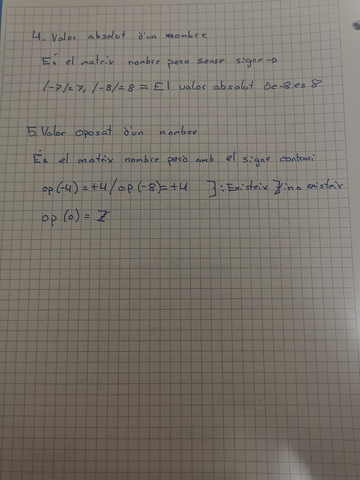 4. Valor absolut d'un mombre
És el mateix nombre pero sense signe →
/-7/=7, /-8/=8 = El valor absolut de -8 es 8
5. Valor oposat d'un nombre
És el mateix nombre però amb el signe contrari
op(-4)=+4/op(-8)=+4 ∃: Existeix ∄: no existeix
op(0) = ∄